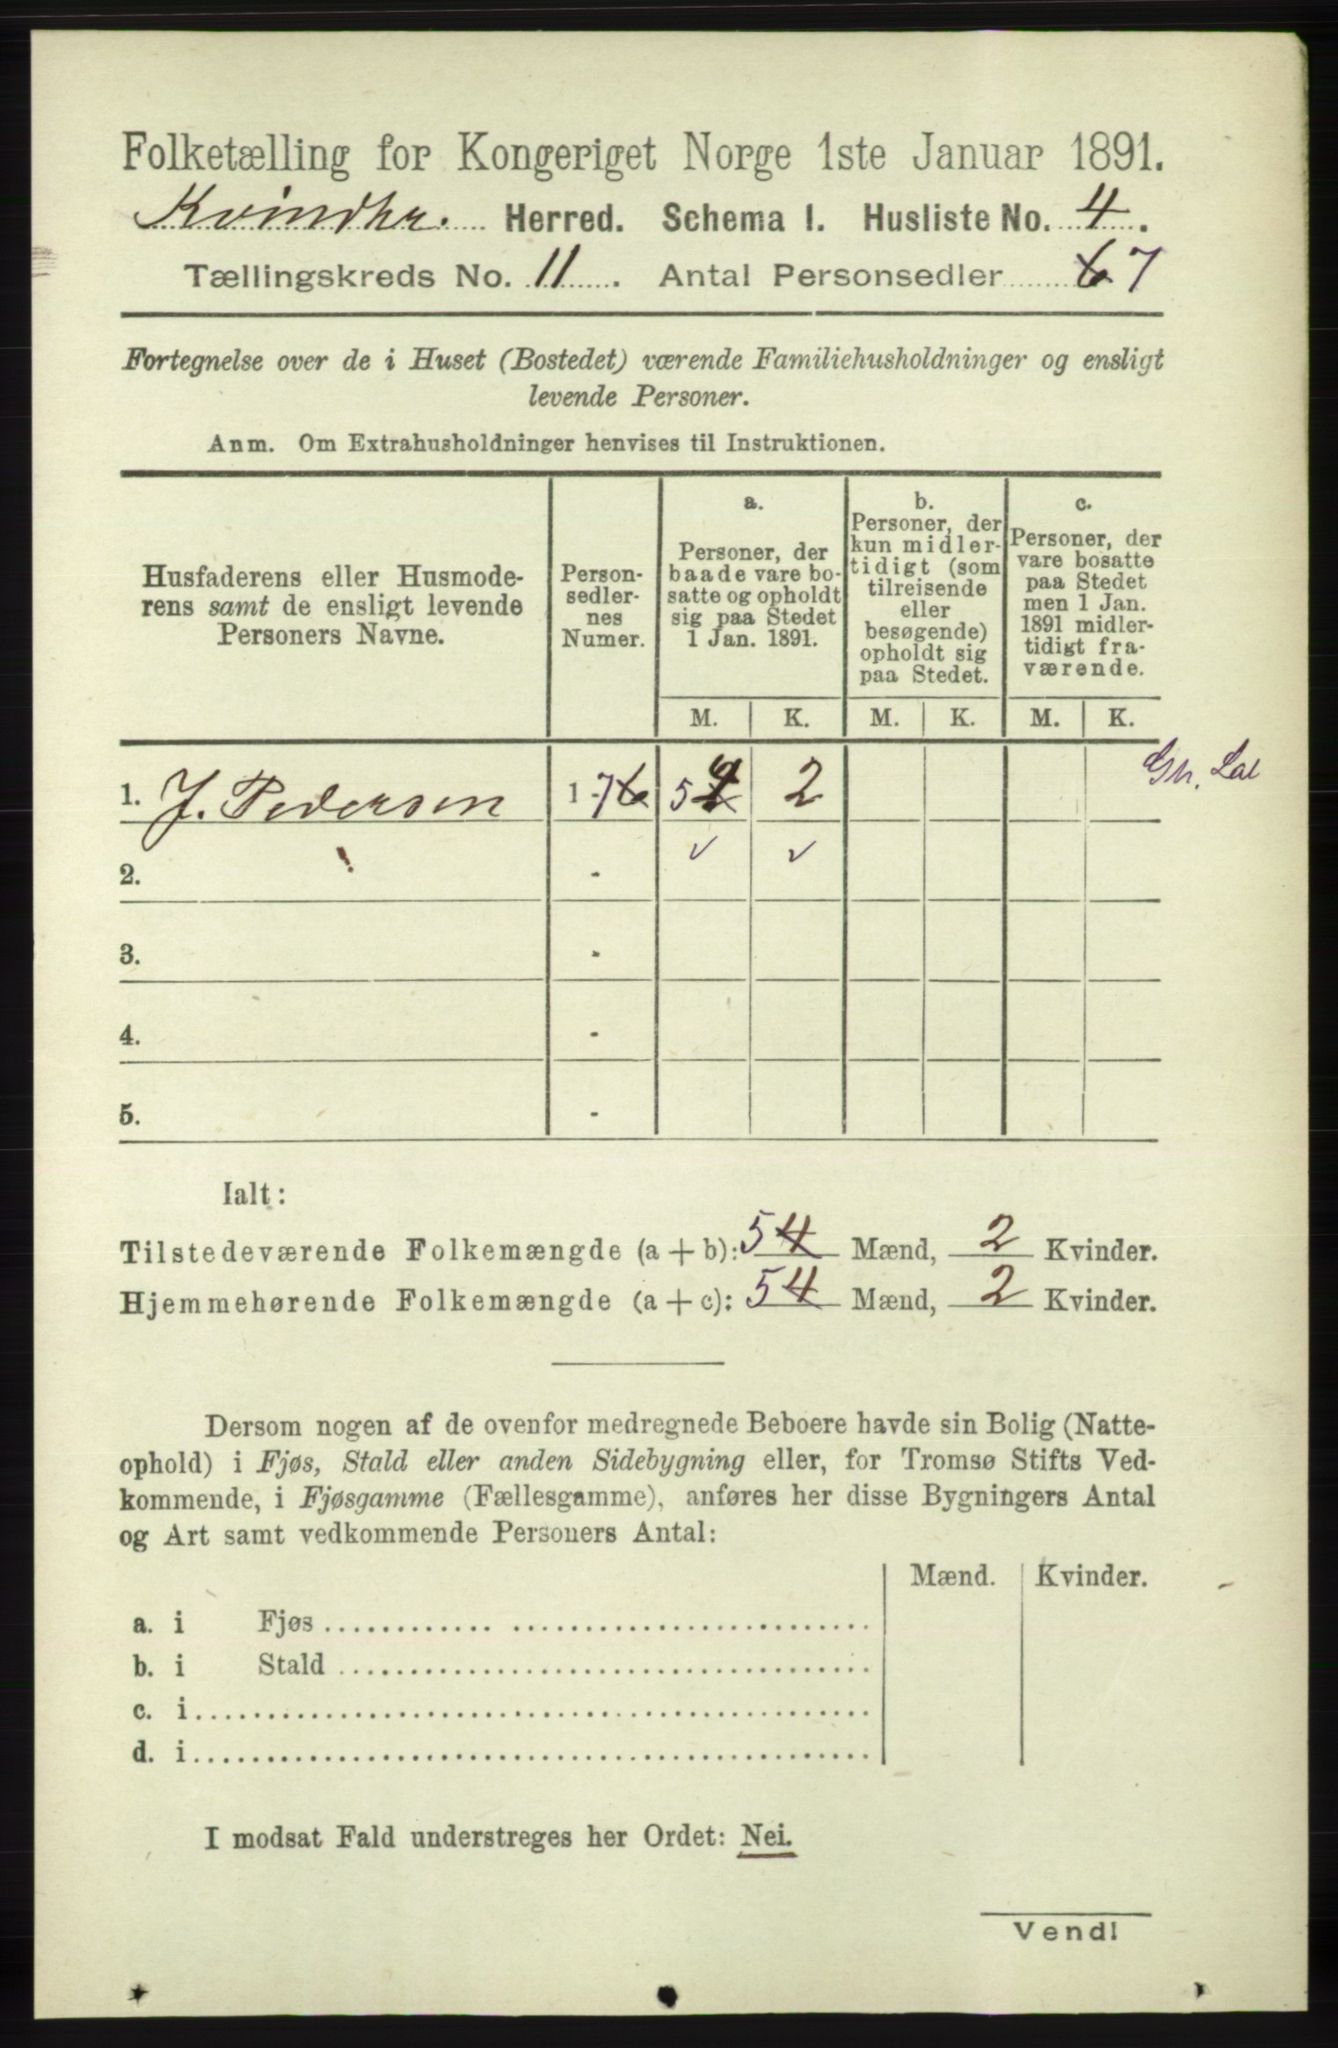 Folketælling for Kongeriget Norge 1ste Januar 1891.
Kvindhr. Herred. Schema 1. Husliste No. 4.
Tællingskreds No. 11. Antal Personsedler 6 7
Fortegnelse over de i Huset (Bostedet) værende Familiehusholdninger og ensligt
levende Personer.
Anm. Om Extrahusholdninger henvises til Instruktionen.
Husfaderens eller Husmode-
rens samt de ensligt levende
Personers Navne.
Person-
sedler-
nes
Numer.
a.
Personer, der
baade vare bo-
satte og opholdt
sig paa Stedet
1 Jan. 1891.
b.
Personer, der
kun midler-
tidigt (som
tilreisende
eller
besøgende)
opholdt sig
paa Stedet.
c.
Personer, der
vare bosatte
paa Stedet
men 1 Jan.
1891 midler-
tidigt fra-
værende.
M. K. M. K. M. K.
1. J. Pedersen 1 - 7 6 5 4 2
2. -
3. -
4. -
5. -
Ialt:
Tilstedeværende Folkemængde (a + b): 5 4 Mænd, 2 Kvinder.
Hjemmehørende Folkemængde (a + c): 5 4 Mænd, 2 Kvinder.
Dersom nogen af de ovenfor medregnede Beboere havde sin Bolig (Natte-
ophold) i Fjøs, Stald eller anden Sidebygning eller, for Tromsø Stifts Ved-
kommende, i Fjøsgamme (Fællesgamme), anføres her disse Bygningers Antal
og Art samt vedkommende Personers Antal:
Mænd. Kvinder.
a. i Fjøs
b. i Stald
c. i
d. i
I modsat Fald understreges her Ordet: Nei.
Vend!